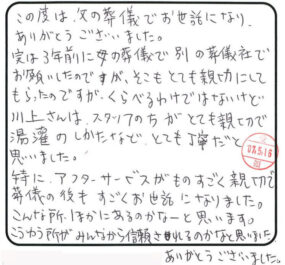 この度は、父の葬儀でお世話になり、
ありがとうございました。
実は3年前に母の葬儀で別の葬儀社で
お願いしたのですが、そこもとても親切にして
もらったのですが、くらべるわけではないけど
川上さんは、スタッフの方がとても親切で
湯灌のしかたなど、とても丁寧だと
思いました。
特に、アフターサービスがものすごく親切で
葬儀の後もすごくお世話になりました。
こんな所、ほかにあるのかなーと思います。
こうゆう所がみんなから信頼されるのかなと思いました
ありがとうございました。